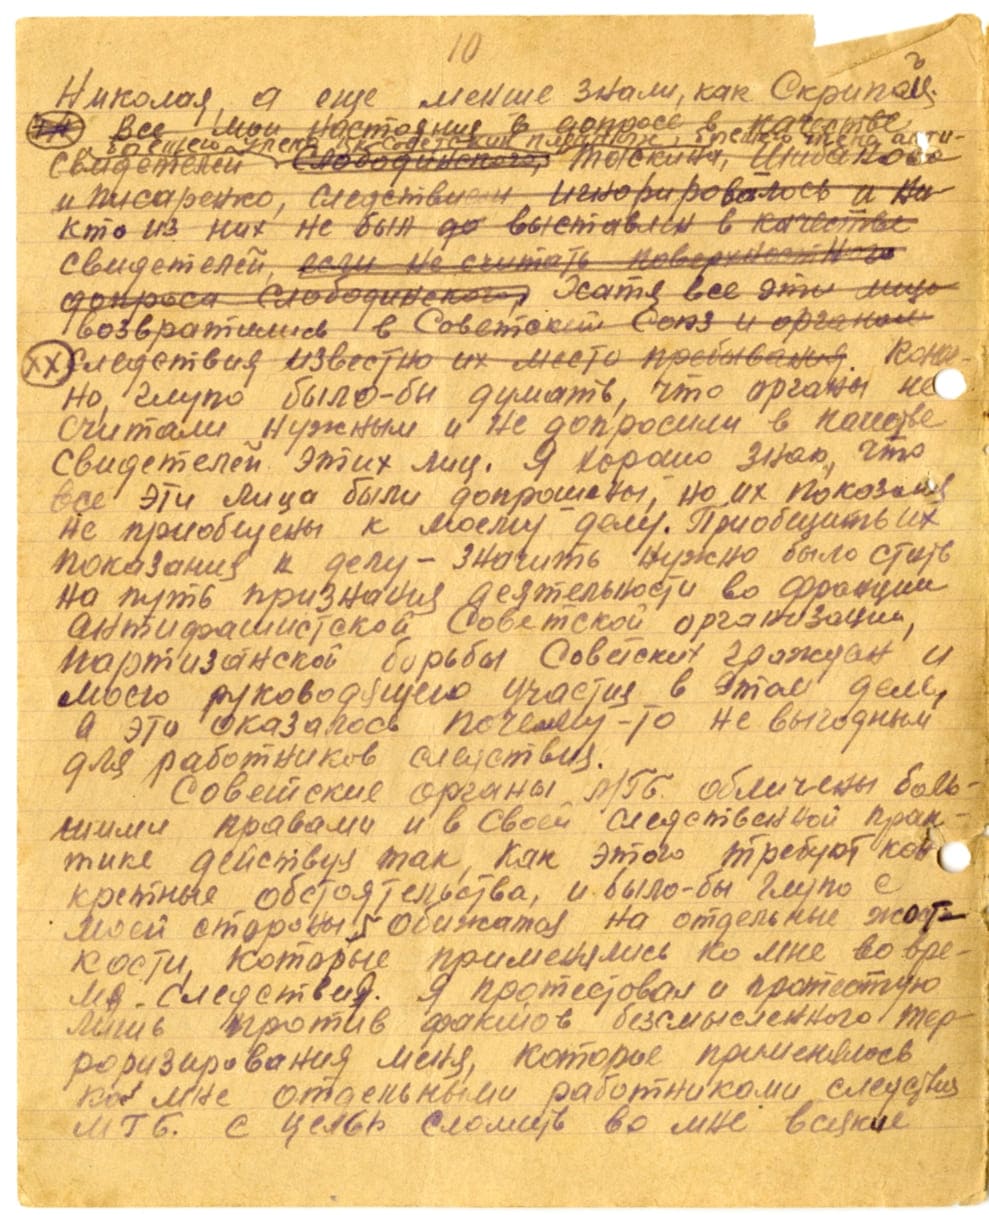 10
Николая, а еще меньше знали, как Скрипай.
Все мои настояния в допросе в качестве
бывшего члена ЦК советских пленных,
свидетелей Слободинского, Тоскина, Шибанова
и Писаренко, следствием игнорировалось и ни-
кто из них не был до выставлен в качестве
свидетелей, если не считать поверхностного
допроса Слободинского, Хатя все эти лица
возвратились в Советский Союз и органом
XX следствия известно их место пребывания. Конеч-
но, глупо было-бы думать, что органы не
считали нужным и не допросили в качестве
свидетелей этих лиц. Я хорошо знаю, что
все эти лица были допрошены, но их показания
не приобщены к моему делу. Приобщить их
показания к делу – значить нужно было стать
на путь признания деятельности во Франции
антифашистской Советской организации,
партизанской борьбы Советских граждан и
моего руководящего участия в этом деле,
а это оказалось почему-то не выгодным
для работников следствия.
Советские органы МГБ. обличены боль-
шими правами и в своей следственной прак-
тике действуя так, как этого требуют кон-
кретные обстоятельства, и было-бы глупо с
моей стороны обижатся на отдельные жост-
кости, которые применялись ко мне во вре-
мя следствия. Я протестовал и протестую
лишь против фактов безсмысленного тер-
роризирования меня, которое применялось
ко мне отдельными работниками следствия
МГБ. с целью сломить во мне всякие